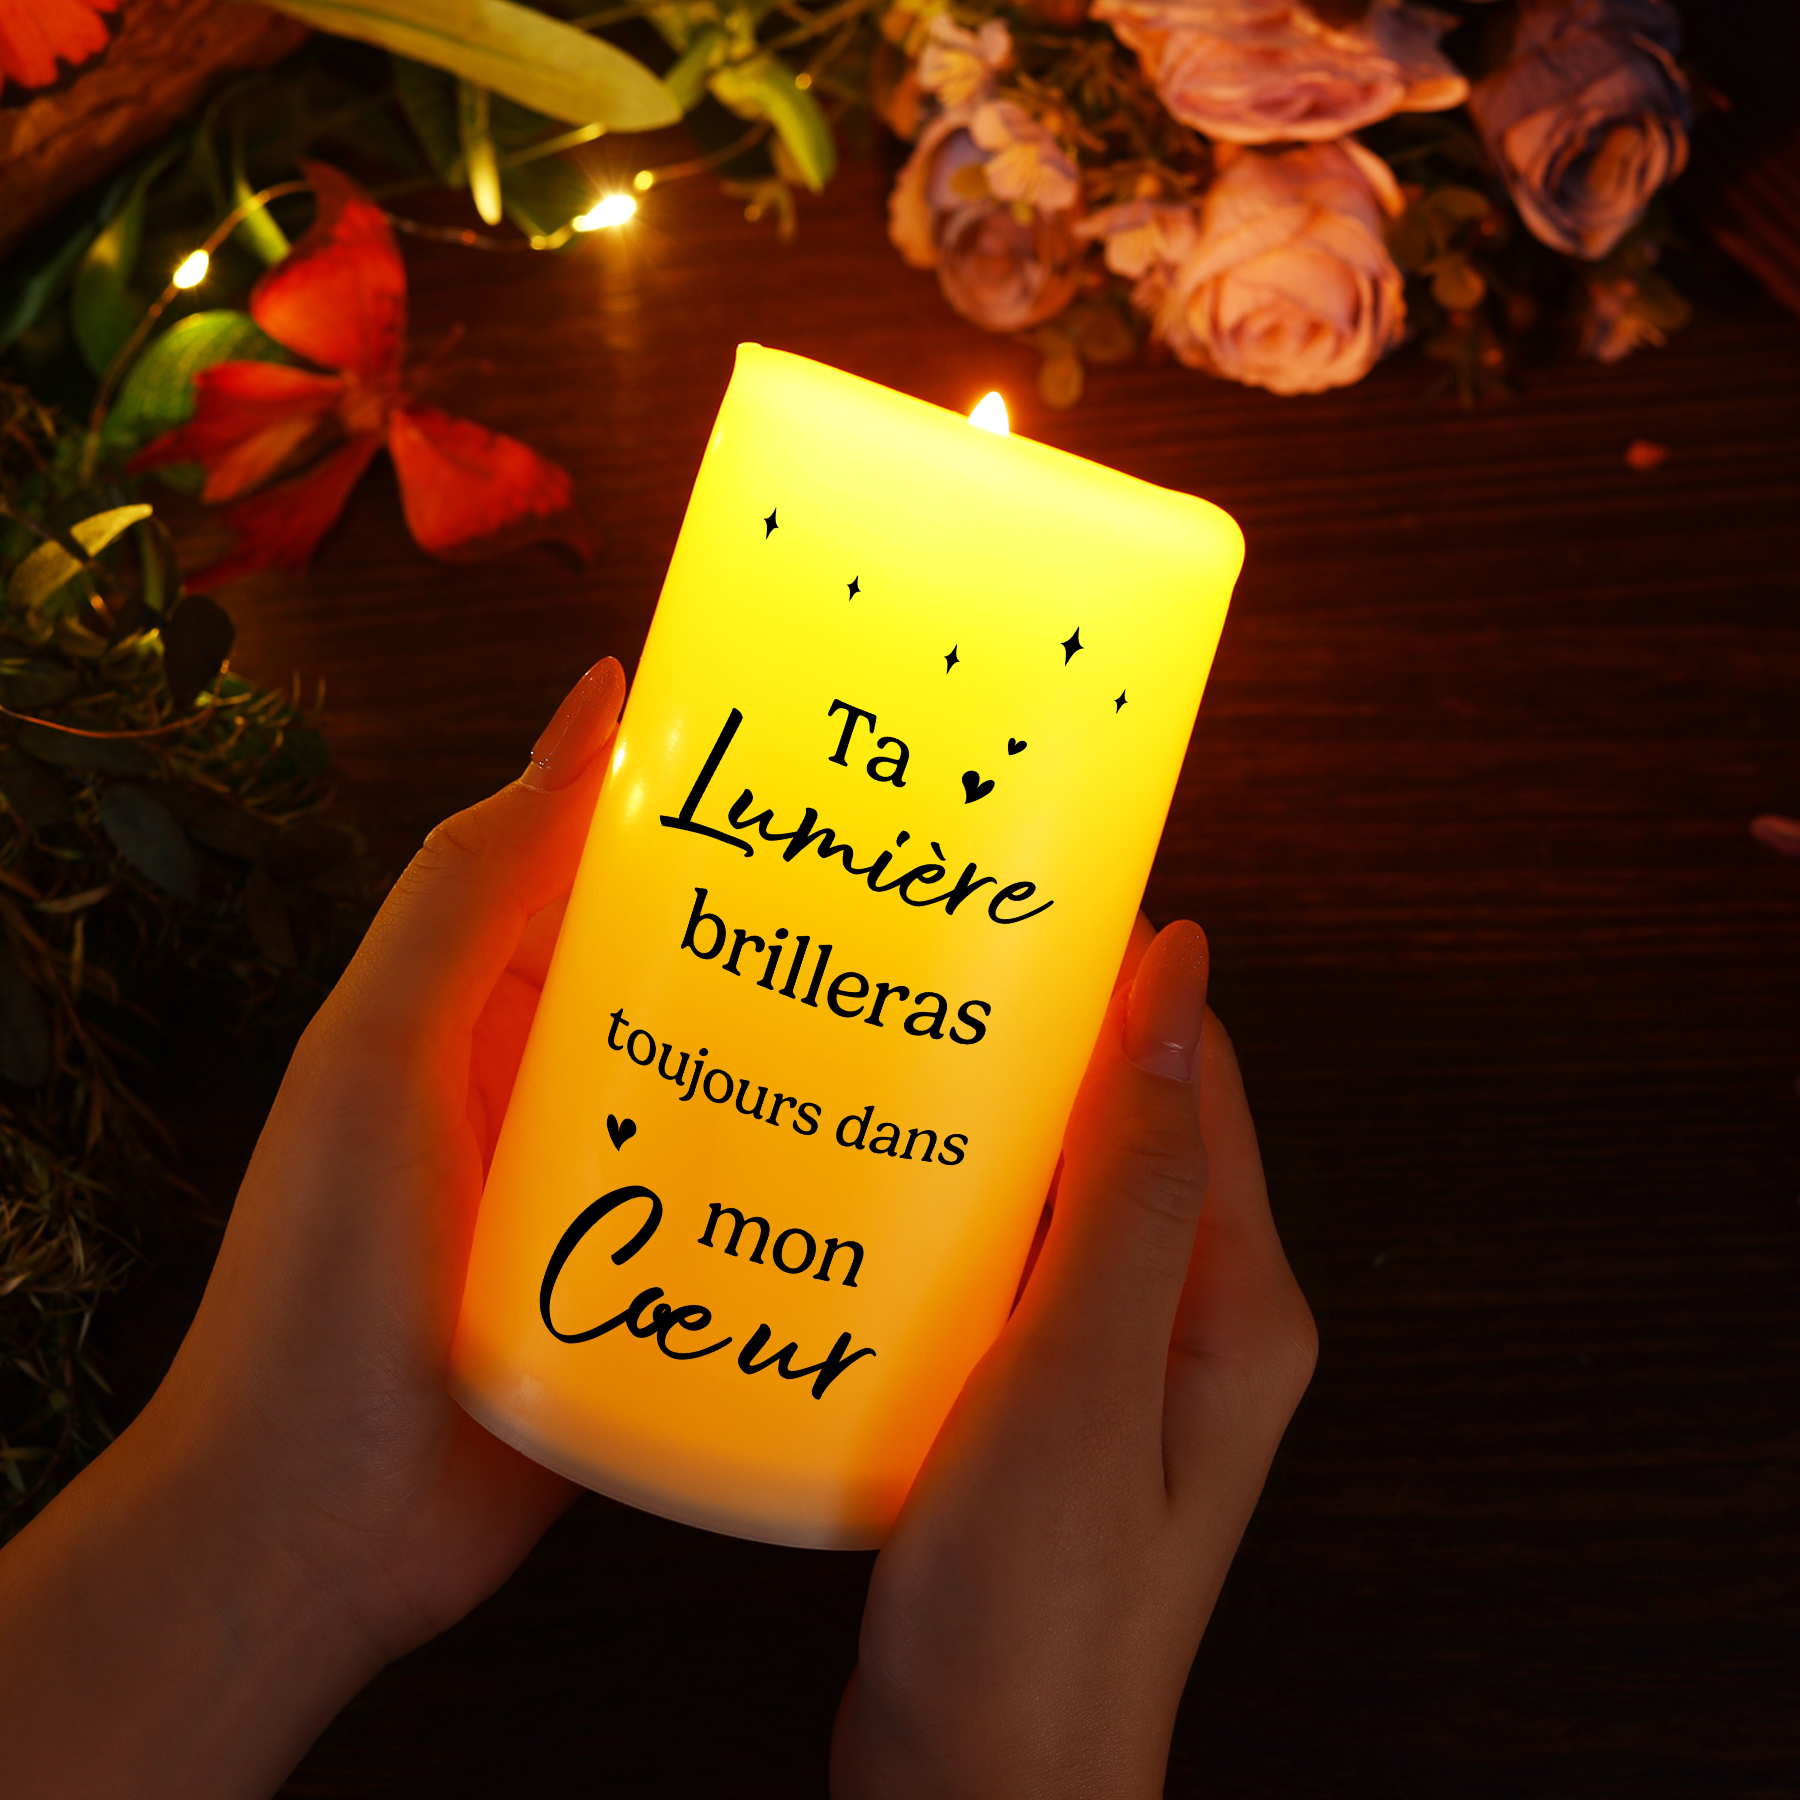 Ta
Lumière
brilleras
toujours dans
mon
Cœur